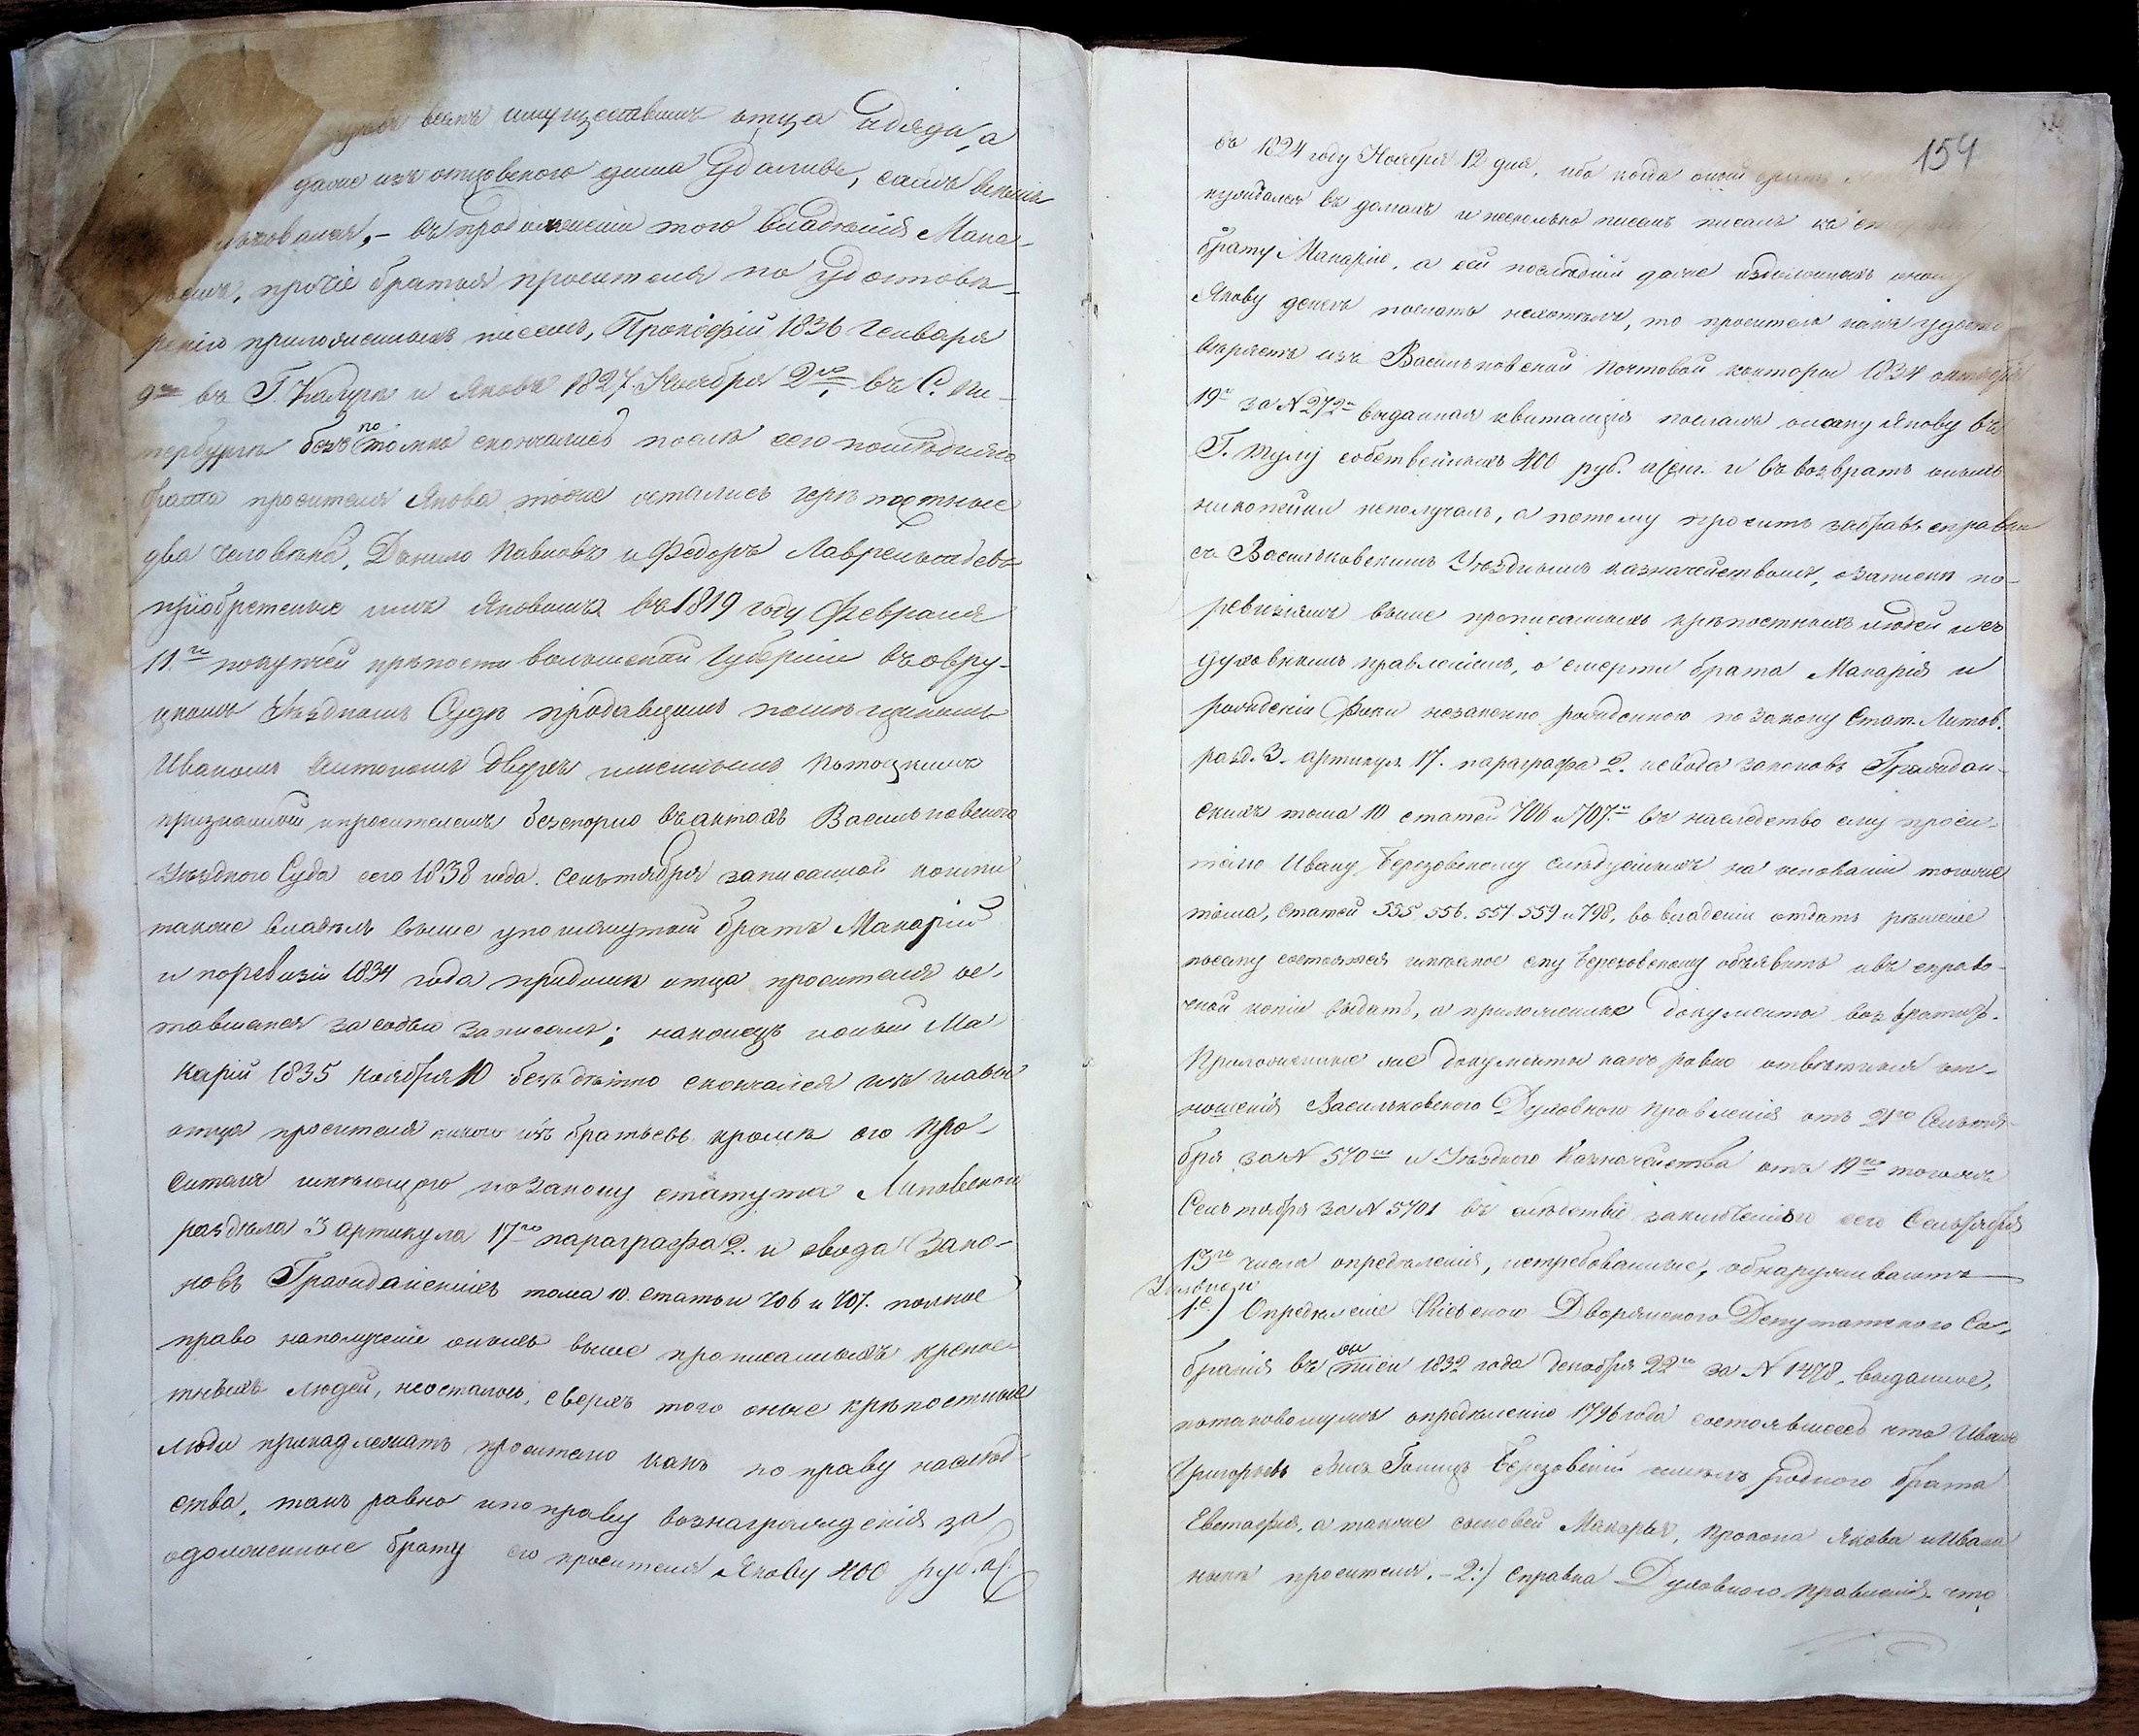 всемъ имуществомъ отца и дяди, а
даже изъ отцовского дома удаливъ, самъ всемъ
пользовался, – въ продолженіи того владенія Мака-
ріемъ, прочіе братья просителя по удостове-
ренію приложенныхъ писемъ, Прокофій 1836 Генваря
9го въ Г. Калуге и Яковъ 1827 Ноября 2го, въ С. Пе-
тербурге безъ потомно скончались после сего последняго
брата просителя Якова тоже остались крепостные
два человека, Данило Павловъ и Федоръ Лаврентьевъ
пріобретенные имъ Яковомъ въ 1819 году Февраля
11го покупчей крепости волынской Губерніи въ овру-
цкомъ Уездномъ Суде продавцомъ помещикомъ
Иваномъ Антономъ двухъ именнымъ Потоцкимъ
признанной и просителемъ безспорно въ актахъ Васильковского
Уездного Суда сего 1838 года. Сентября записанной коими
также владелъ выше упомянутый братъ Макарій
и поревизіи 1834 года придоме отца просителя ос-
тавшемся за собою записалъ; наконецъ и оный Ма-
карій 1835 Ноября 10 безъ детно скончался изъ главы
отца просителя никого изъ братьевъ кроме его про-
сителя имеющого по Закону статута Литовского
раздела 3 артикула 17го параграфа 2. и свода Зако-
новъ Гражданскихъ тома 10. статьи 706 и 707. полное
право на получение оныхъ выше прописанныхъ крепос-
тныхъ людей, неосталось, сверхъ того оные крепостные
люди принадлежатъ просителю какъ по праву наслед-
ства, такъ равно и по праву вознагражденія за
одолженные брату его просителя Якову 400 руб. ас.
154
въ 1824 году Ноября 12 дня, ибо когда оный братъ
нуждался въ деньгахъ и несколько писемъ писалъ къ старшему
брату Макарію, а сей последній даже одолженныхъ оному
Якову денегъ послать нехотелъ, то проситель какъ удосто-
веряетъ изъ Васильковской почтовой конторы 1834 октября
19го за N 272м выданная квитанція послалъ оному Якову въ
Г. Тулу собственныхъ 400 руб. асиг. и въ возвратъ оныхъ
никопейки неполучалъ, а потому проситъ забравъ справки
съ Васильковскимъ Уезднымъ казначействомъ, о записки по-
ревизіямъ выше прописанныхъ крепостныхъ людей и съ
духовнымъ правленіемъ, о смерти брата Макарія и
рожденіи Фоки незаконно рожденного по Закону Стат. Литов.
разд. 3. артикул. 17. параграфа 2. и свода законовъ Граждан-
скихъ тома 10 статей 706 и 707.й въ наследство ему проси-
телю Ивану Березовскому следуемыхъ на основаніи тогоже
тома, статей 555. 556. 557. 559 и 798, во владеніи отдать решеніе
посему состояться имеющое ему Березовскому объявить изъ справо-
чной копіи выдать, а приложенные документы возвратить.
Приложенные же документы какъ равно ответныя от-
ношенія Васильковского Духовного правленія отъ 21го Сентя-
бря за N 570мъ и Уездного Казначейства отъ 19го того же
Сентября за N 5701 въ следствіе заключеннаго сего Сентября
13го числа определенія, истребованные, обнаруживаютъ
1е.) Определеніе Кіевского Дворянского Депутатского Со-
бранія въ копіи 1832 года декабря 22го за N 1478, выданное,
потаковомужъ определенію 1796 года состоявшееся что Иванъ
Григорьевъ сынъ Березовскій имелъ родного брата
Евстафія, а также сыновей Макарія, Прокопа Якова и Ивана
ныне просителя. – 2.) Справка Духовного Правленія что